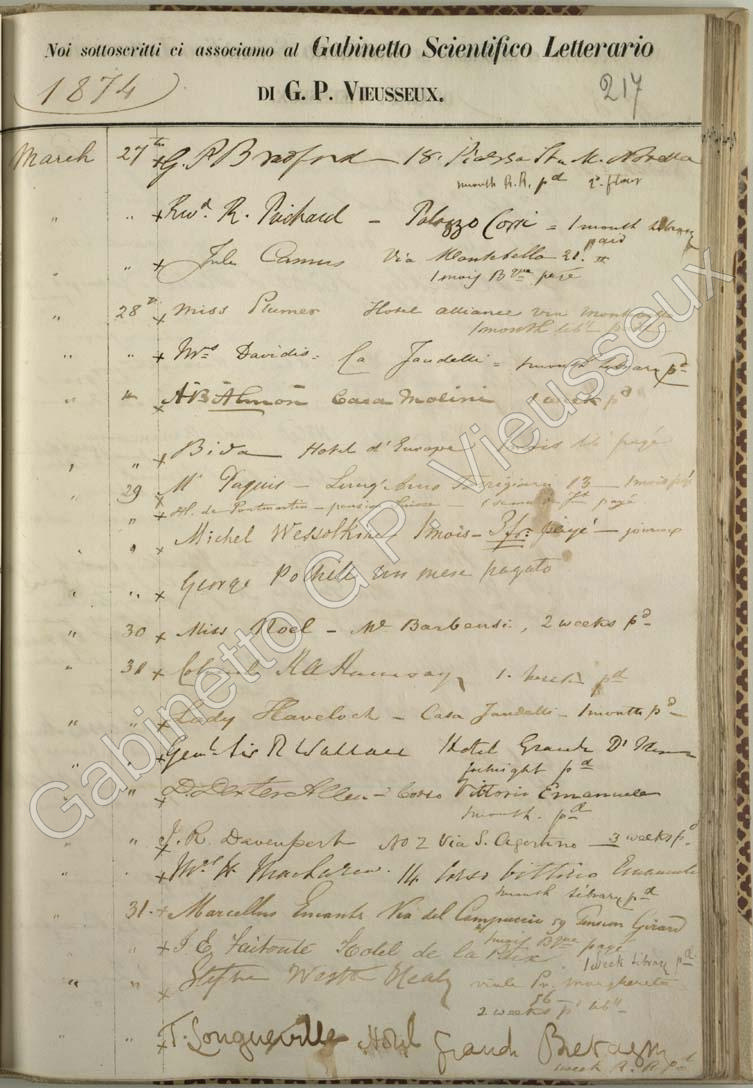 Noi sottoscritti ci associamo al Gabinetto Scientifico Letterario
DI G. P. VIEUSSEUX.
1874
217
March 27th x G. P. Bradford 18. Piazza Sta M. Novella
month R. R. pd 2o floor
" " x Rev. R. Pichard – Palazzo Corsi = 1 month Library
paid
" " x Jules Camus Via Montebello
1 mois Bque payé
" 28th x Miss Plumer Hotel alliance via
1 month libr
" " x Mrs Davidis = Ca Jandelli = 1 month Library pd
" " x Casa Molini 1 week pd
" " x Bida Hotel d'Europe mois payé
" 29 x Mr Paquis – Lung'Arno 13 – 1 mois
" x pension Suisse – 1 payé
" " x Michel 1 mois – 3 fr: payé –
" " x George un mese pagato
" 30 x Miss Noel – Me Barbensi, 2 weeks pd
" 31 x Colonel Ramsay 1. week pd
" " x Lady Havelock – Casa Jandelli – 1 month pd
" " x Genl Sir R Wallace Hotel Grande
fortnight pd
" " x D. Dexter Allen = Corso Vittorio Emanuele
month. pd
" " x J. R. Davenport No 2 Via S. 3 weeks pd
" . x Mrs 14 Corso Vittorio Emanuele
month Library pd
" 31. x Marcellus Emants Via del Campuccio 59 Pension Girard
1 mois Bque payé
" " x J E Faitoute Hotel de la Paix
1 week Library pd
" " x West Healy viale Pr. Margherita
2 weeks pd
" " x T. Longueville Hotel Grande Bretagne
week R. R pd
Gabinetto G.P. Vieusseux